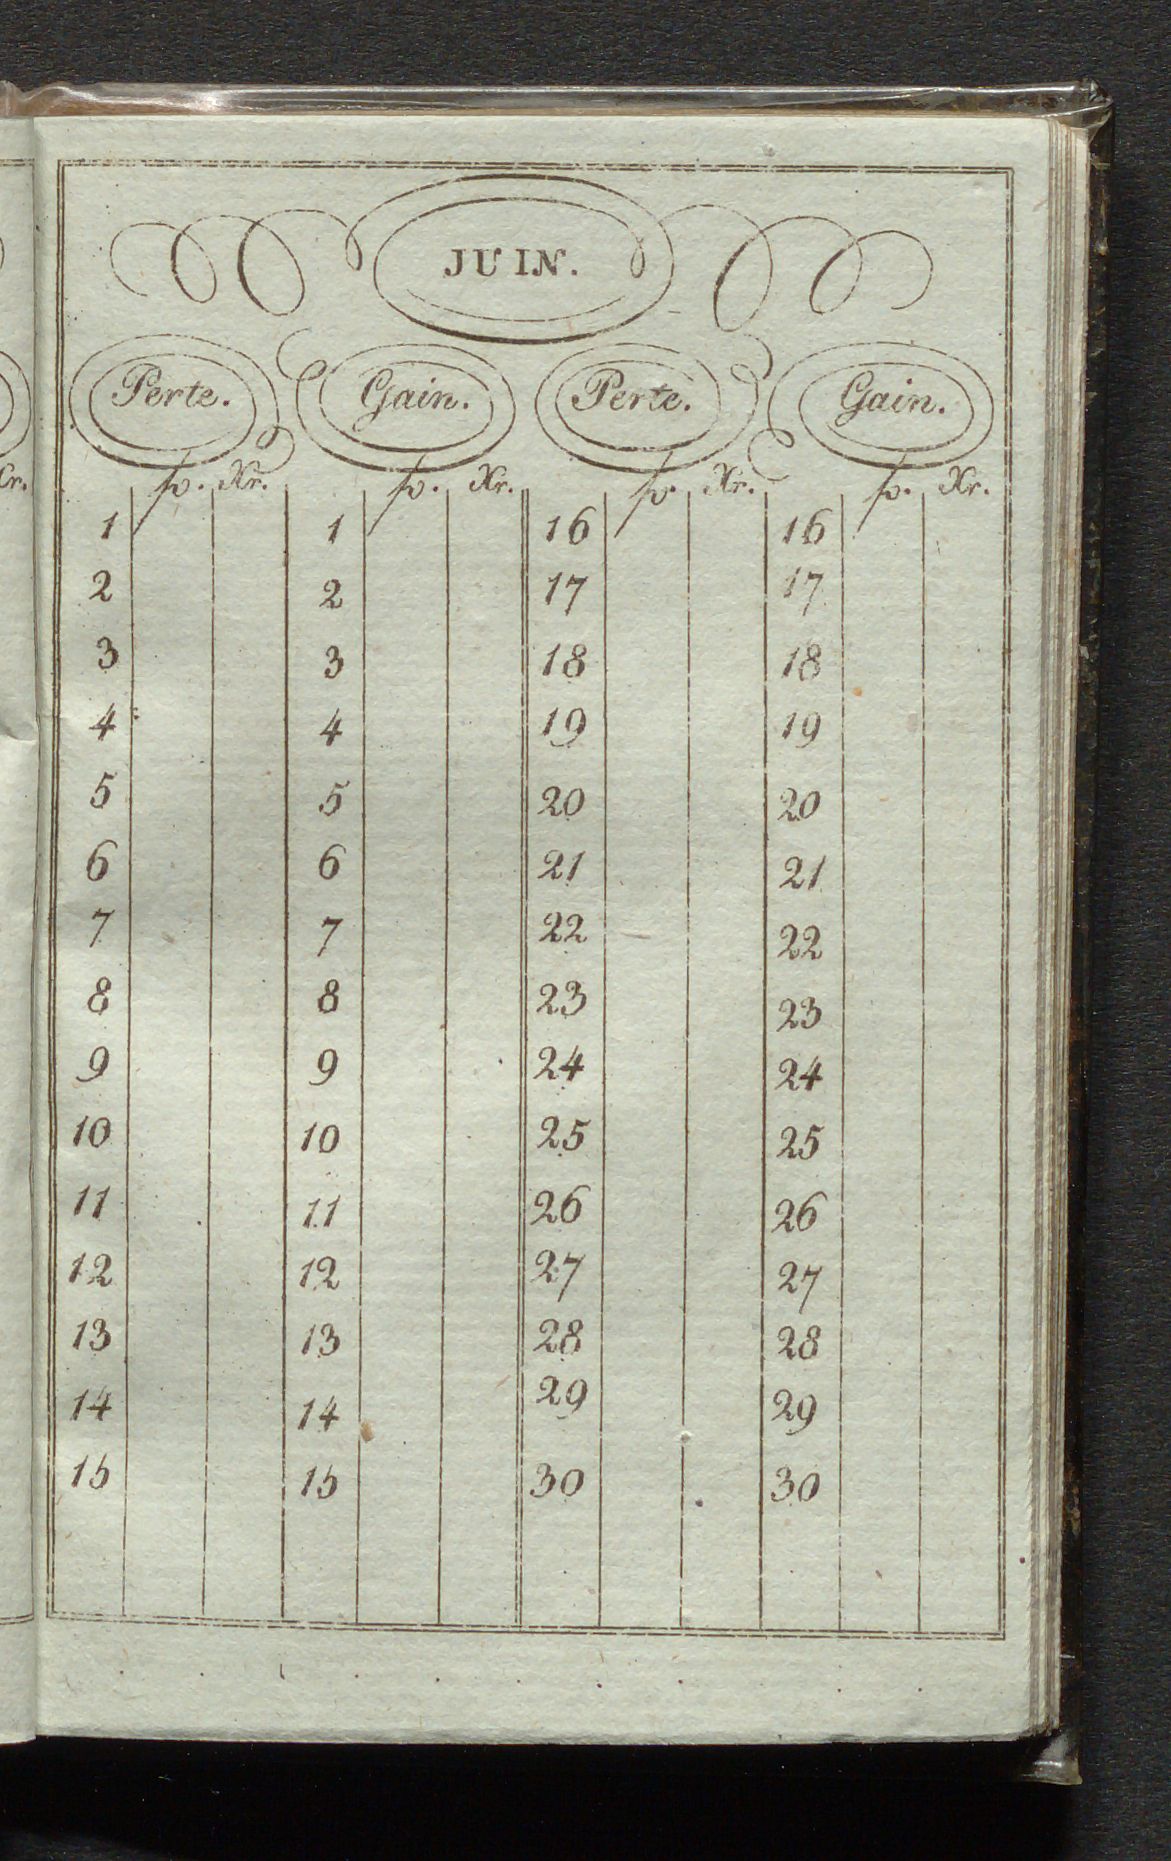 JUIN.
Perte. Gain. Perte. Gain.
Xr. fl. Xr. fl. Xr. fl. Xr. fl. Xr.
1 1 16 16
2 2 17 17
3 3 18 18
4 4 19 19
5 5 20 20
6 6 21 21
7 7 22 22
8 8 23 23
9 9 24 24
10 10 25 25
11 11 26 26
12 12 27 27
13 13 28 28
14 14 29 29
15 15 30 30